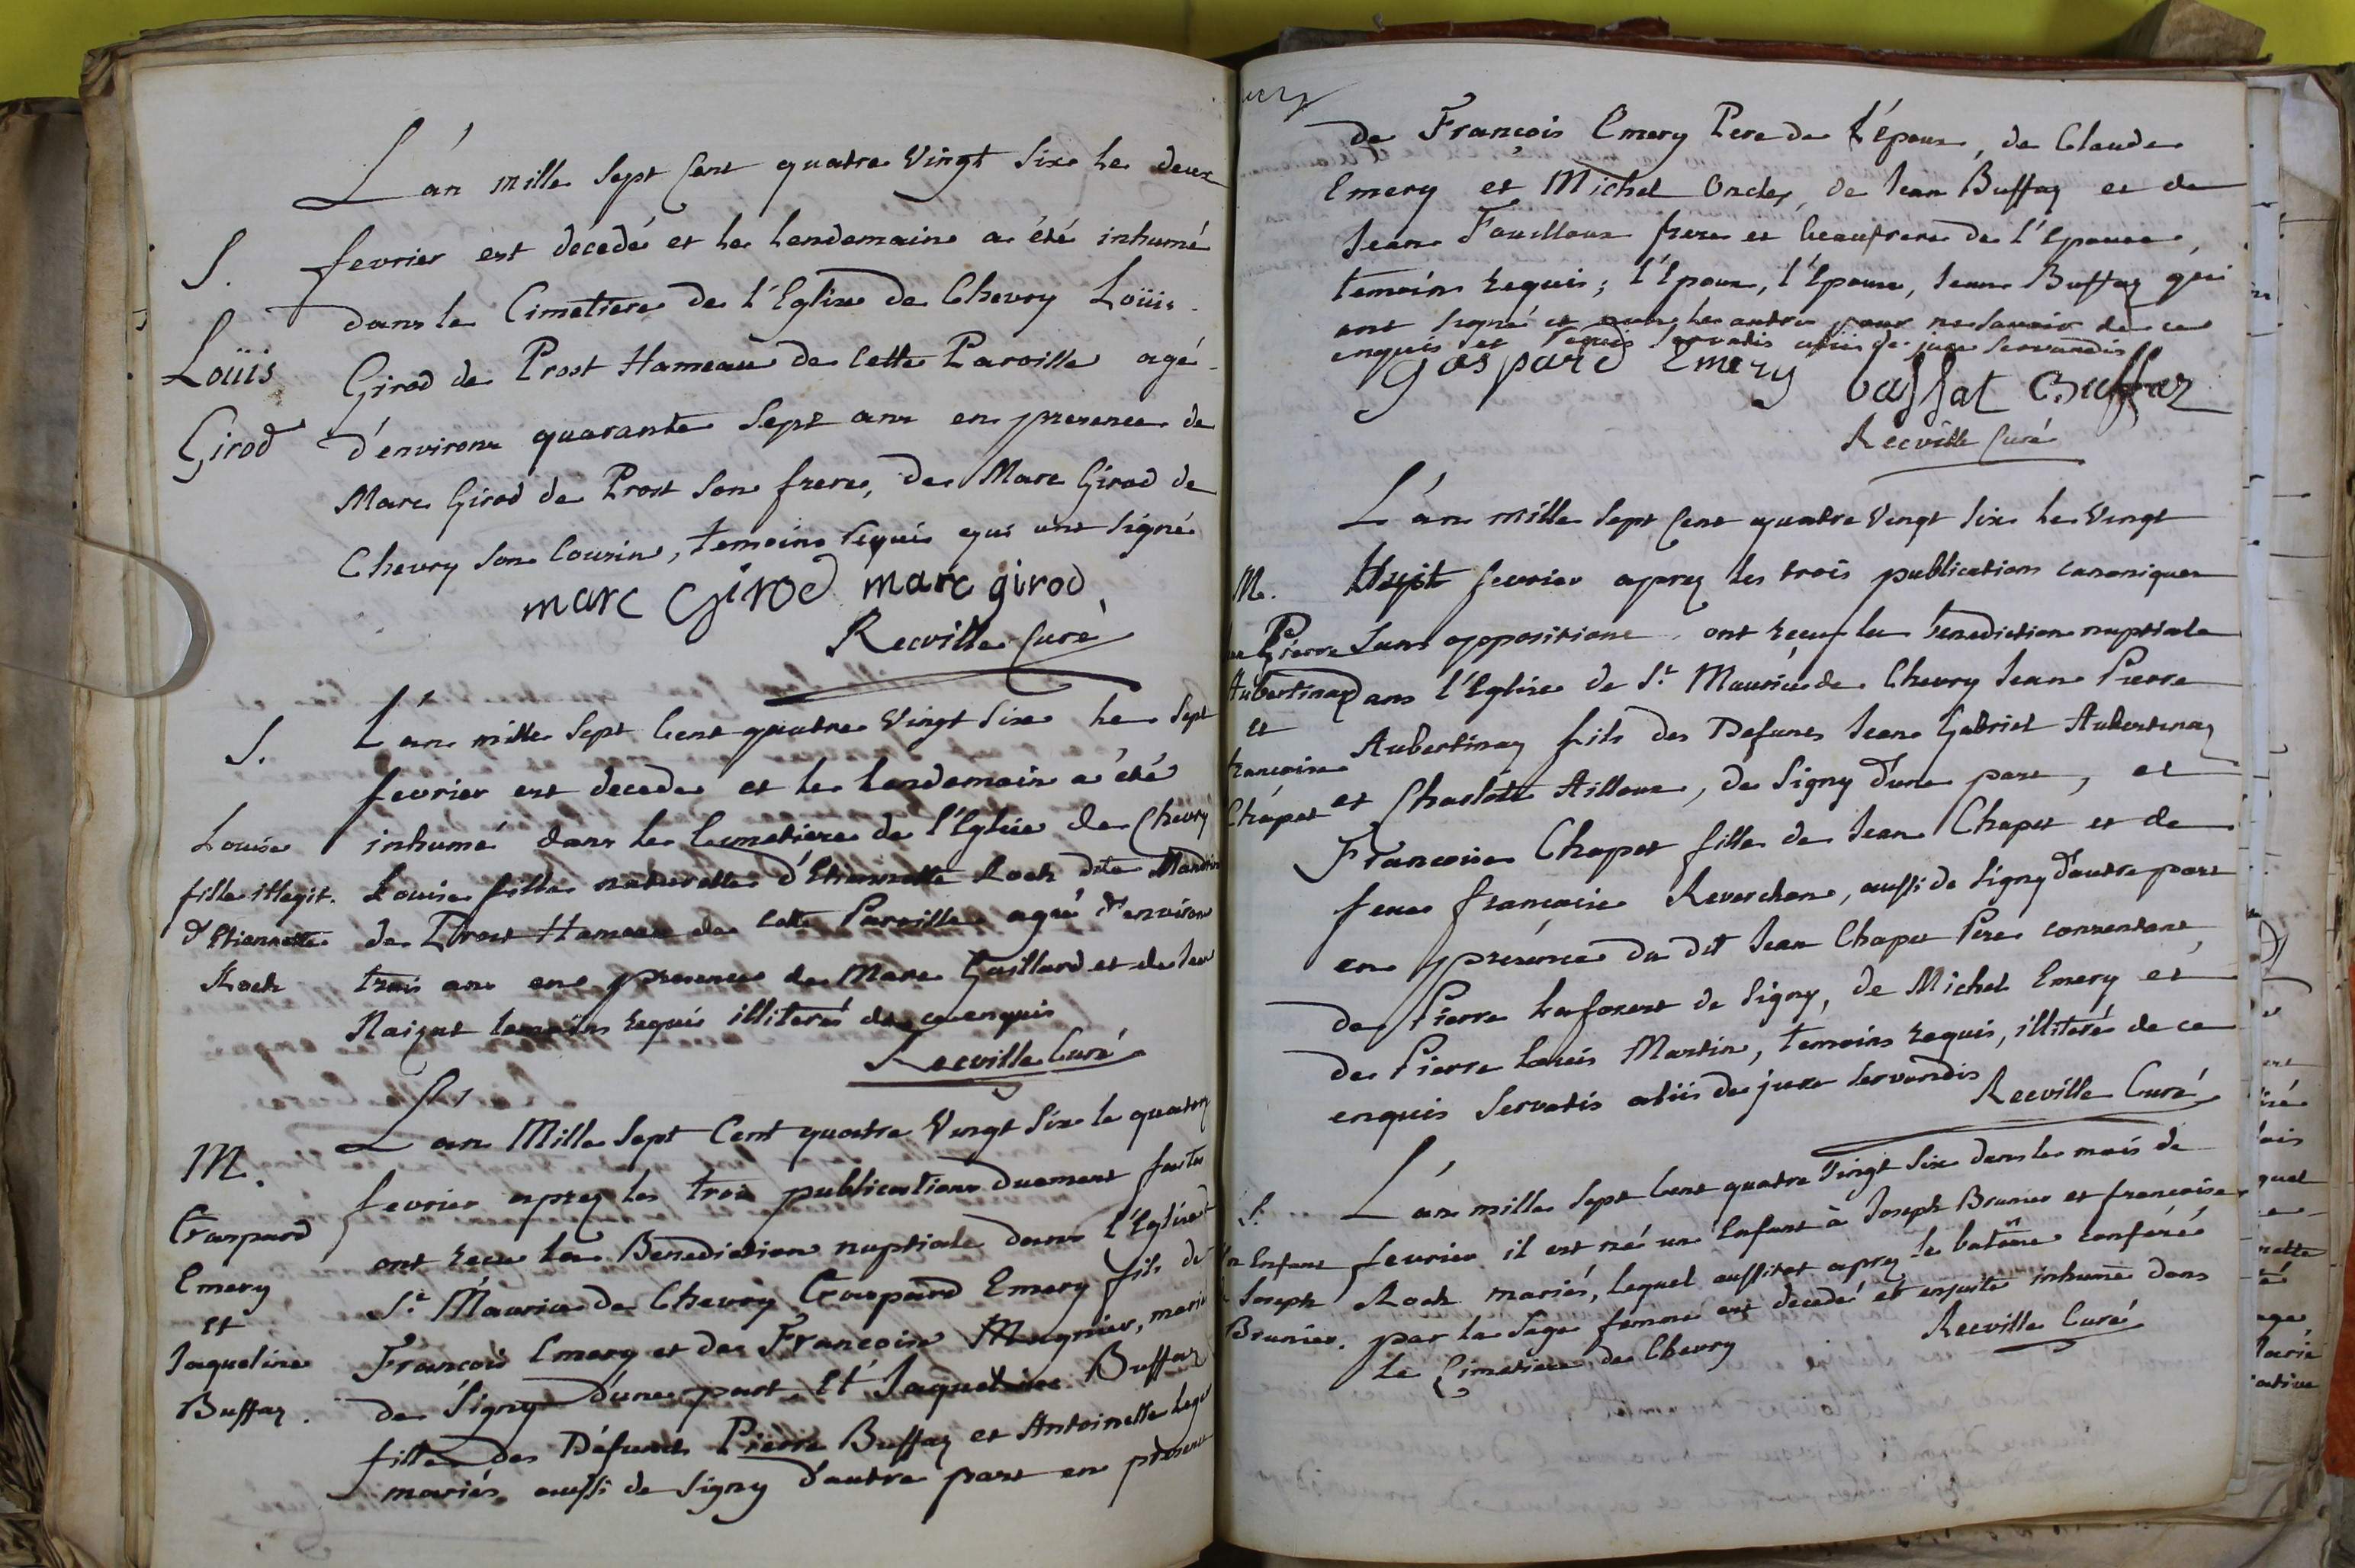 L'an mille Sept Cent quatre Vingt Six le deux
S. fevrier est décedé et le lendemain a été inhumé
dans le Cimetiere de l'Eglise de Chevry Loüis
Loüis
Girod de Prost Hameau de Cette Paroisse agé
Girod
d'environ quarante Sept ans en presence de
Marc Girod de Prost Son frere, de Marc Girod de
Chevry Son Cousin, temoins requis qui ont Signé
marc Girod marc girod
Recville Curé
L'an mille Sept Cent quatre Vingt Six le Sept
S.
fevrier est decedé et le lendemain a été
Louise
inhumé dans le Cimetiere de l'Eglise de Chevry
fille illegit.
Louise fille naturelle d'Etiennette Roch dite Mandrin
d'Etiennette
de Prost Hameau de Cette Paroisse agée d'environ
Roch
trois ans en presence de Marc Gaillard et de
temoins requis illiterés de ce enquis
Recville Curé
L'an Mille Sept Cent quatre Vingt Six le quatorze
M.
fevrier aprez les trois publications duement faites
Gaspard
ont recu la Benediction nuptiale dans l'Eglise de
Emery
St Maurice de Chevry Gaspard Emery fils de
et
François Emery et de Françoise Mugnier, mariés
Jaqueline
de Signy d'une part Et Jaqueline Buffaz
Buffaz.
fille des Défunts Pierre Buffaz et Antoinette Leger
mariés, aussi de Signy d'autre part en presence
de François Emery Pere de l'époux, de Claude
Emery et Michel Oncles, de Jean Buffaz et de
Jean Fouilloux frere et beaufrere de l'Epouse,
temoins requis; l'Epoux, l'Epouse, Jean Buffaz qui
ont Signé et non les autres pour ne Savoir de ce
enquis et requis Servatis aliis de jure Servandis
gaspard Emery Buffaz
Recville Curé
L'an mille Sept Cent quatre Vingt Six le Vingt
M.
huit fevrier aprez les trois publications canoniques
Pierre
Sans opposition ont reçu la benediction nuptiale
Aubertinaz
dans l'Eglise de St Maurice de Chevry Jean Pierre
et
Aubertinaz fils des Defunts Jean Gabriel Aubertinaz
françoise
et Charlotte Ailloux, de Signy d'une part, et
Chapet
Françoise Chapet fille de Jean Chapet et de
feue françoise Reverchon, aussi de Signy d'autre part
en présence du dit Jean Chapet Pere consentant,
de Pierre Laforest de Signy, de Michel Emery et
de Pierre Louis Martin, temoins requis, illiteré de ce
enquis Servatis aliis de jure Servandis
Recville Curé
L'an mille Sept Cent quatre Vingt Six dans le mois de
S.
fevrier il est né un Enfant à Joseph Brunier et françoise
un Enfant
Roch mariés, lequel aussitot aprez le batême conféré
de Joseph
par la Sage femme est decedé et ensuite inhumé dans
Brunier.
le Cimetiere de Chevry
Recville Curé